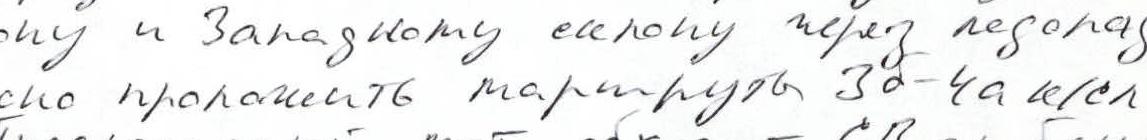 ону и Западному склону через ледопад
сно проложить маршруты 3б-4а к/сл